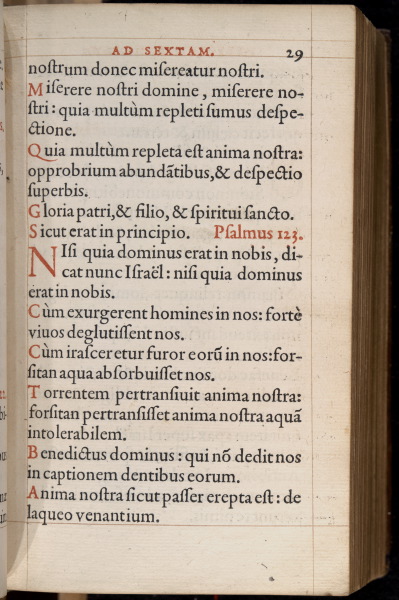 AD SEXTAM. 29
nostrum donec misereatur nostri.
Miserere nostri domine, miserere no-
stri: quia multùm repleti sumus despe-
ctione.
Quia multùm repleta est anima nostra:
opprobrium abundãtibus, & despectio
superbis.
Gloria patri, & filio, & spiritui sancto.
Sicut erat in principio. Psalmus 123.
NIsi quia dominus erat in nobis, di-
cat nunc Israël: nisi quia dominus
erat in nobis.
Cùm exurgerent homines in nos: fortè
viuos deglutissent nos.
Cùm irasceretur furor eorũ in nos: for-
sitan aqua absorbuisset nos.
Torrentem pertransiuit anima nostra:
forsitan pertransisset anima nostra aquã
intolerabilem.
Benedictus dominus: qui nõ dedit nos
in captionem dentibus eorum.
Anima nostra sicut passer erepta est: de
laqueo venantium.